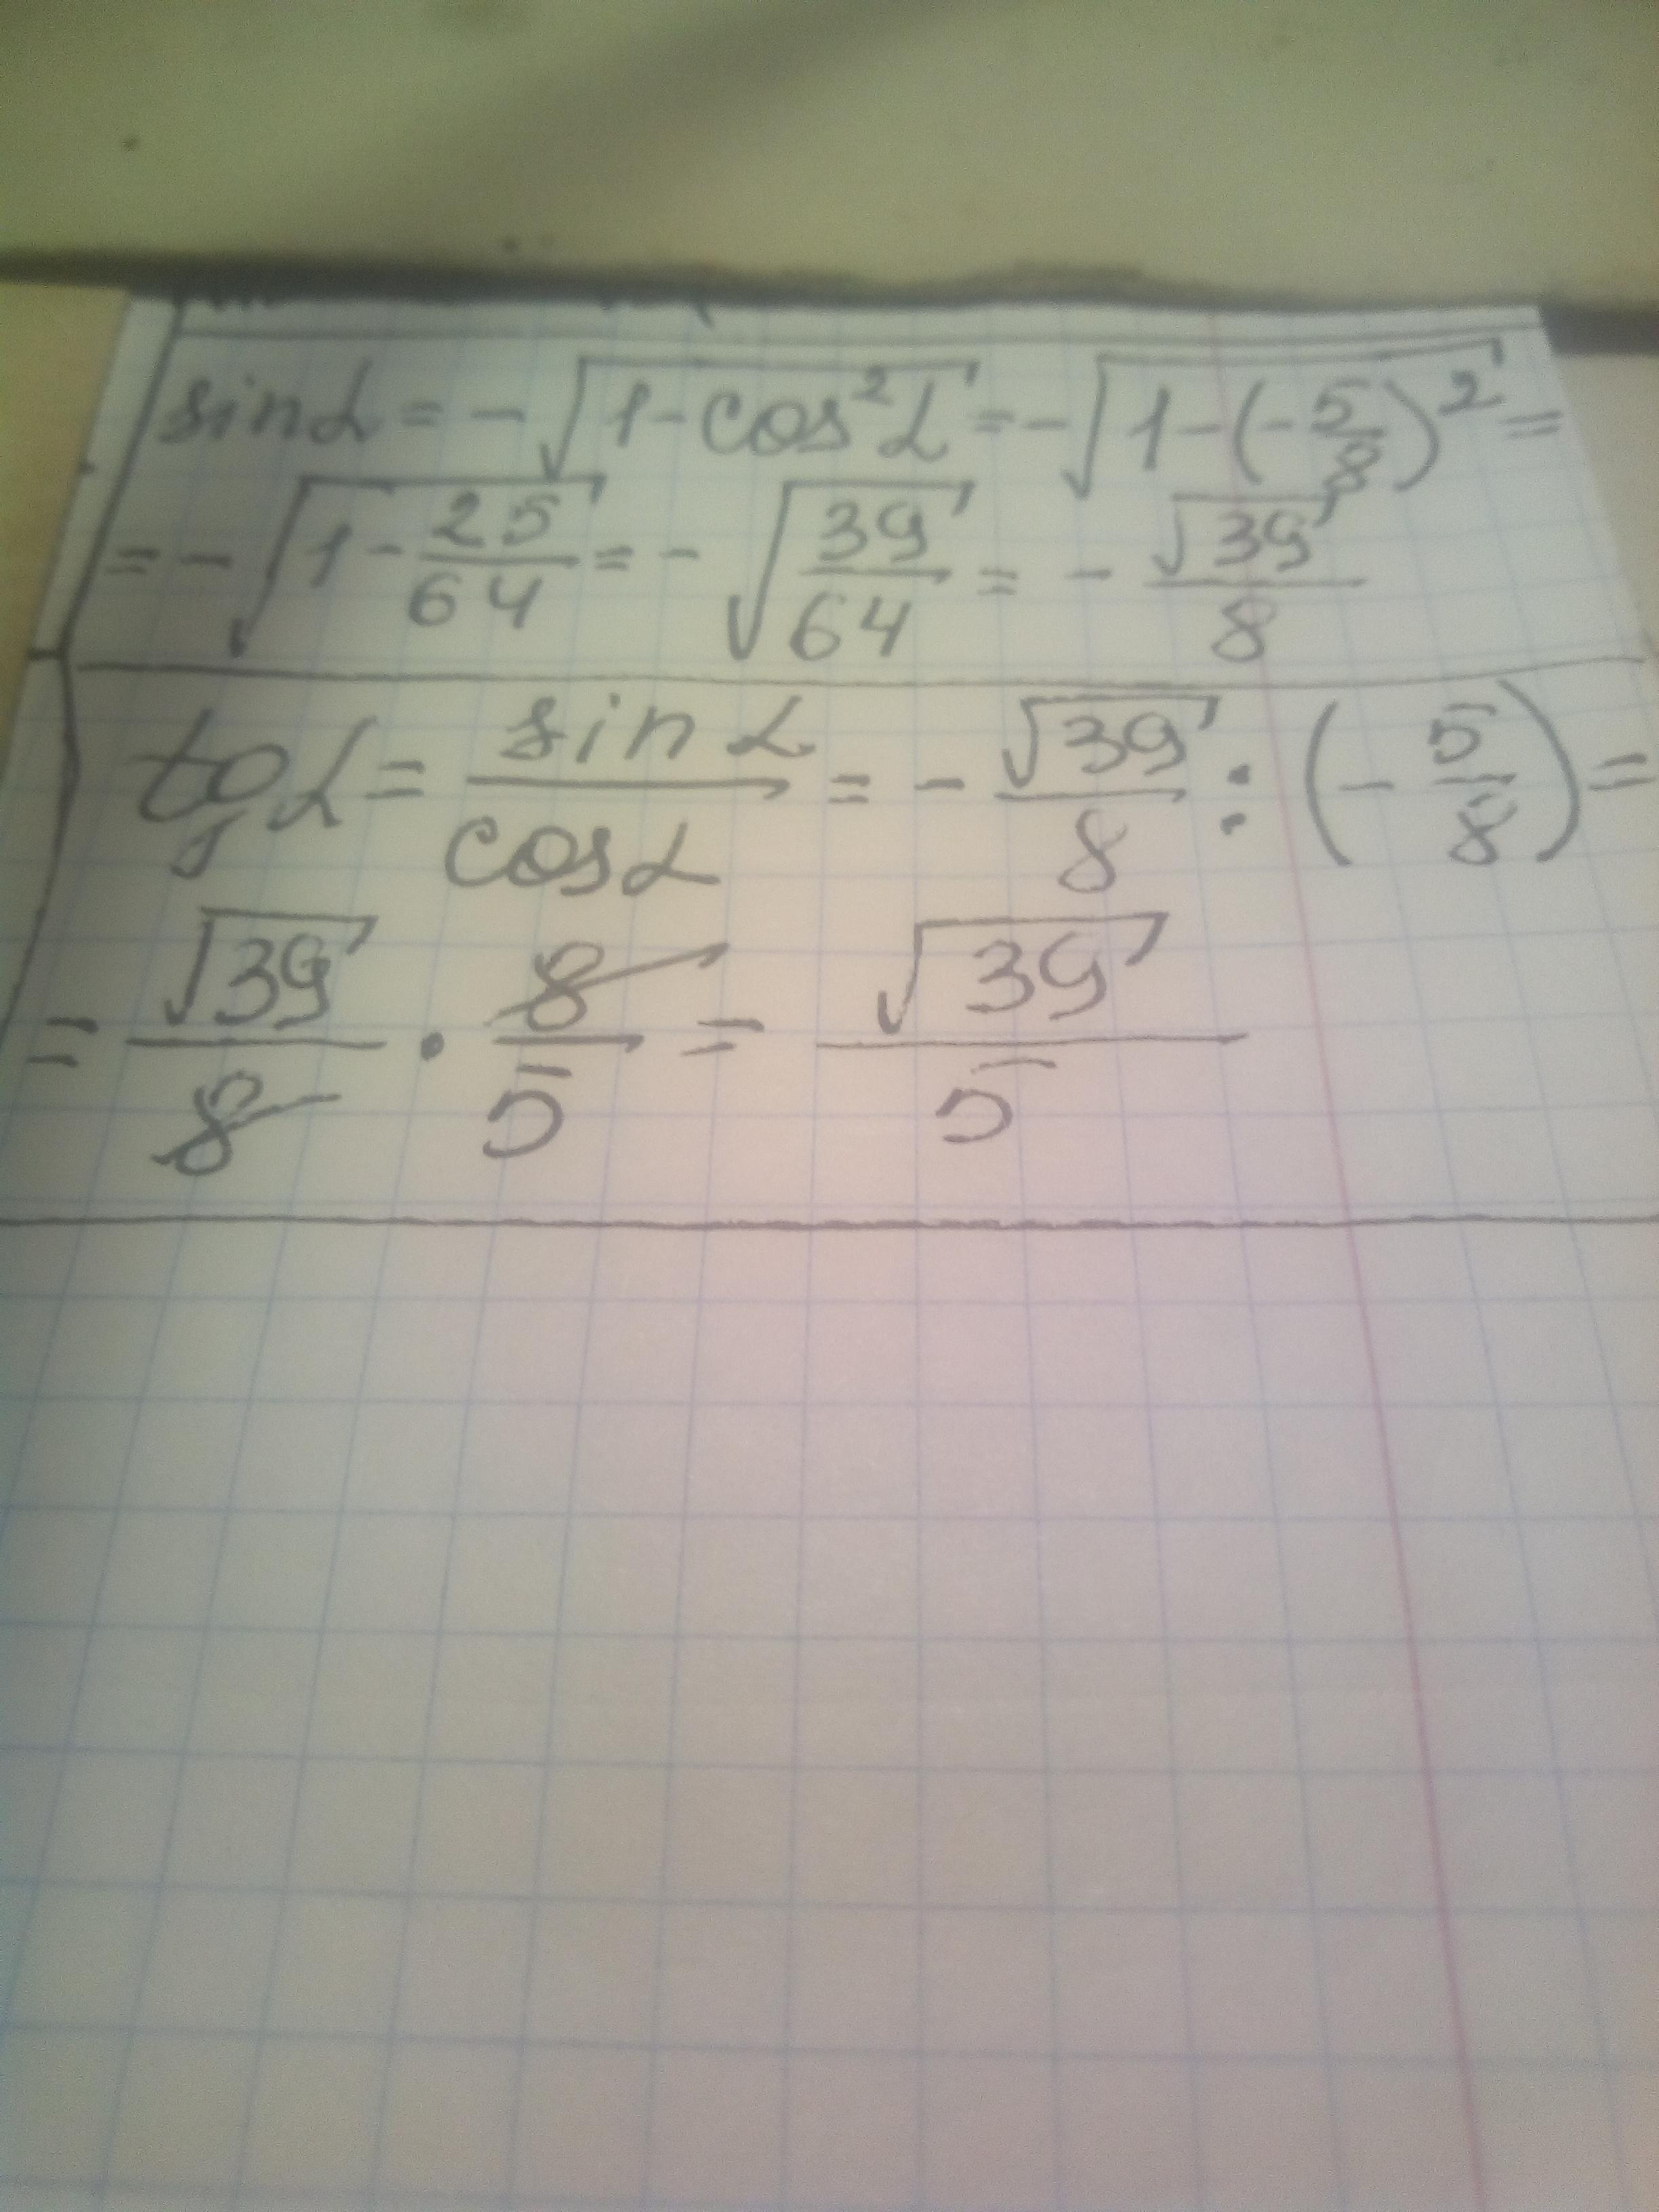 sin α = -√(1 - cos² α) = -√(1 - (-5/8)²) =
= -√(1 - 25/64) = -√(39/64) = -√39/8
tg α = sin α/cos α = -√39/8 : (-5/8) =
= √39/8 · 8/5 = √39/5